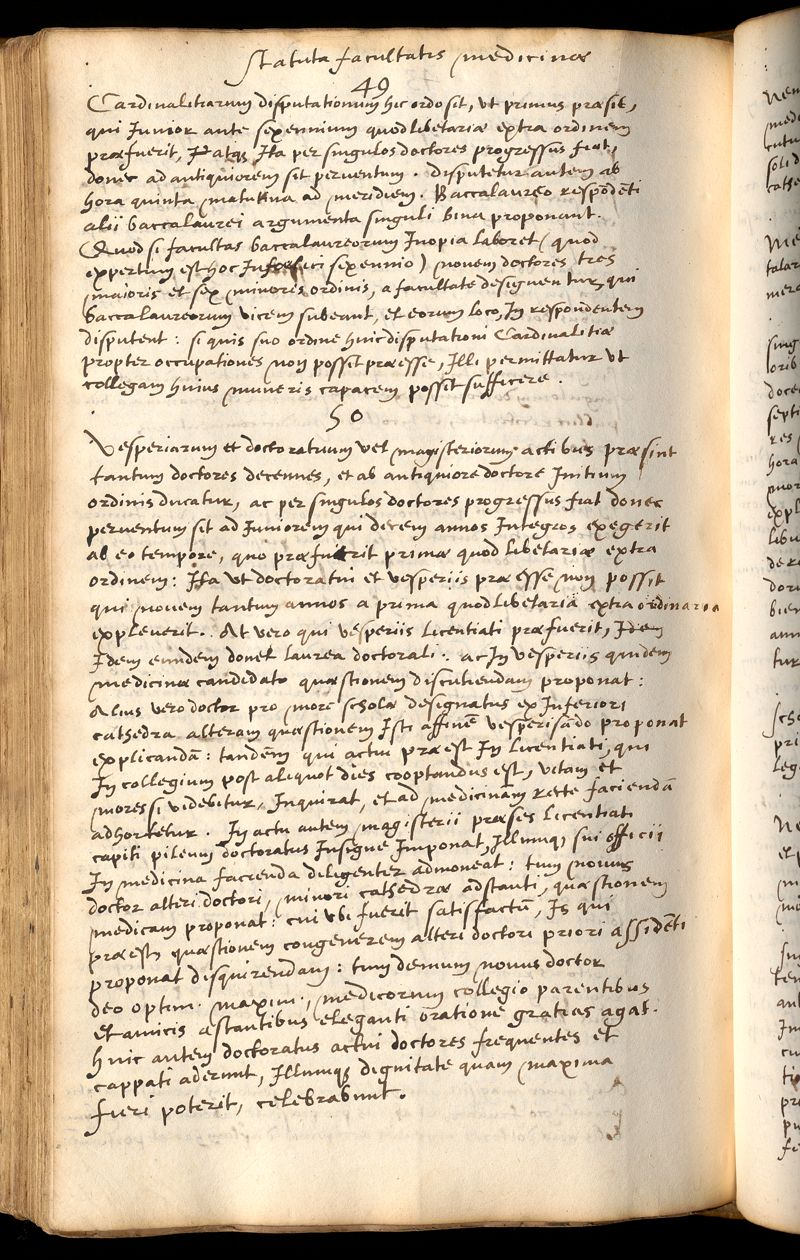 Statuta facultatis medicinæ
49
Cardinalitiarum disputationum hic ordo sit, ut primus præsit,
qui Iunior ante sexennium quodlibetariæ extra ordinem
præfuerit, Itaq; Ita per singulos doctores progressus fiat,
donec ad antiquiorem sit perventum. disputetur autem ab
hora quinta matutina ad meridiem. Baccalaureo respōdēti
alii baccalaurei argumenta singuli bina proponant.
Quod si facultas baccalaureorum Inopia laboret (quod
expertum est hoc sexennio) novem doctores tres
maioris et sex minoris ordinis, a facultate designentur, qui
baccalaureorum vicem subeant, et eorum loco, In respondentem
disputent: si quis suo ordine huic disputationi Cardinalitiæ
propter occupationes non possit præesse, Illi permittatur ut
collegam huius muneris capacem possit sufficere.
50
Vesperiarum et doctoratuum vel magisteriorum actibus præsint
tantum doctores decennes, et ab antiquiore doctore Initium
ordinis ducatur, ac per singulos doctores progressus fiat donec
perventum sit ad Iuniorem qui decem annos Integros exegerit
ab eo tempore, quo præfuerit primæ quodlibetariæ extra
ordinem: Ita ut doctoratui et vesperiis præesse non possit
qui novem tantum annos a prima quodlibetaria extraordinaria
expleverit. At vero qui vesperiis licentiati præfuerit, Idem
Idem eundem donet laurea doctorali. ac In vesperiis quidem
medicinæ candidato quæstionem discutiendam proponat:
Alius vero doctor pro more scholæ designatus ex Inferiori
cathedra alteram quæstionem Isti affinē vesperisādo proponat
explicandā: tandem qui actui præest In licentiati, qui
In collegium post aliquot dies cooptandus est, vitam et
mores si videbitur, Inquirat, et ad medicinam recte faciendā
adhortetur. In actu autem magisterii præses licentiati
capiti pileum doctoratus Insigne Imponat, Illumq; sui officii
In medicina facienda diligenter admoneat: tum novus
doctor alteri doctori, minori cathedræ adstanti, quæstionem
medicam proponat: cui ubi fuerit satisfactū, Is qui
præest, quæstionem congenerem alteri doctori priori assidēti
proponat disquirendam: tum demum novus doctor
deo optim. maxim., medicorum collegio parentibus
et amicis astantibus eleganti oratione gratias agat.
Huic autem doctoratus actui doctores frequentes et
cappati aderunt, Illumq; dignitate quam maxima
fieri poterit, celebrabunt.